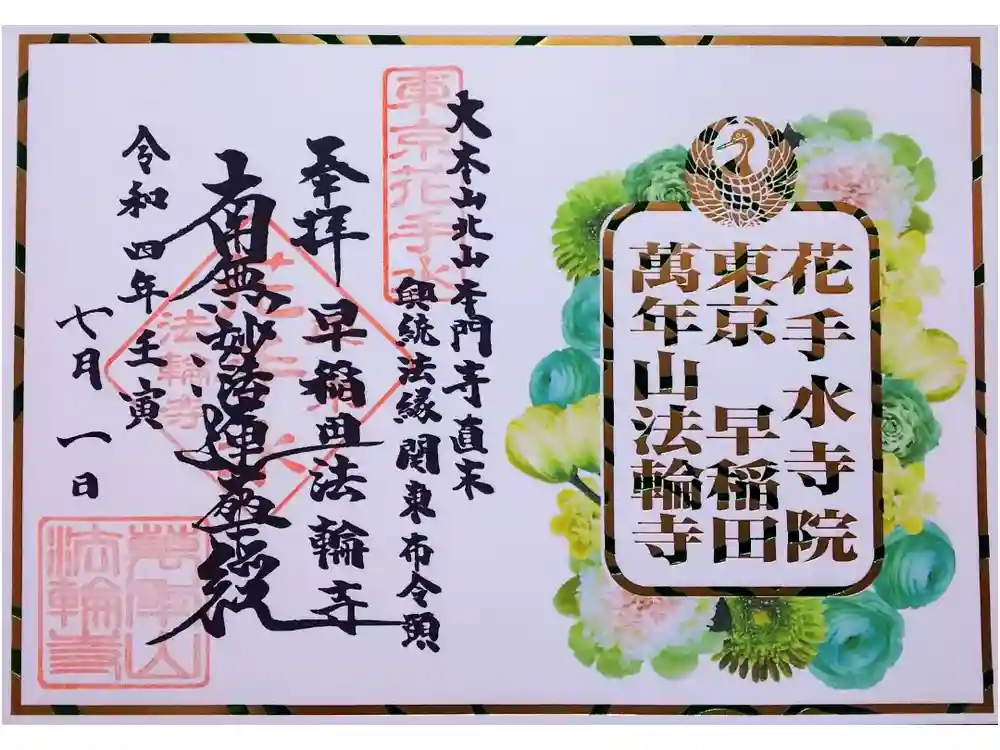 花手水寺院
東京 早稲田
萬年山法輪寺
大本山北山本門寺直末
興統法縁関東布令頭
東京花手水
奉拝 早稲田法輪寺
南無妙法蓮華経
令和四年壬寅
七月一日
法輪寺
萬年山
法輪寺